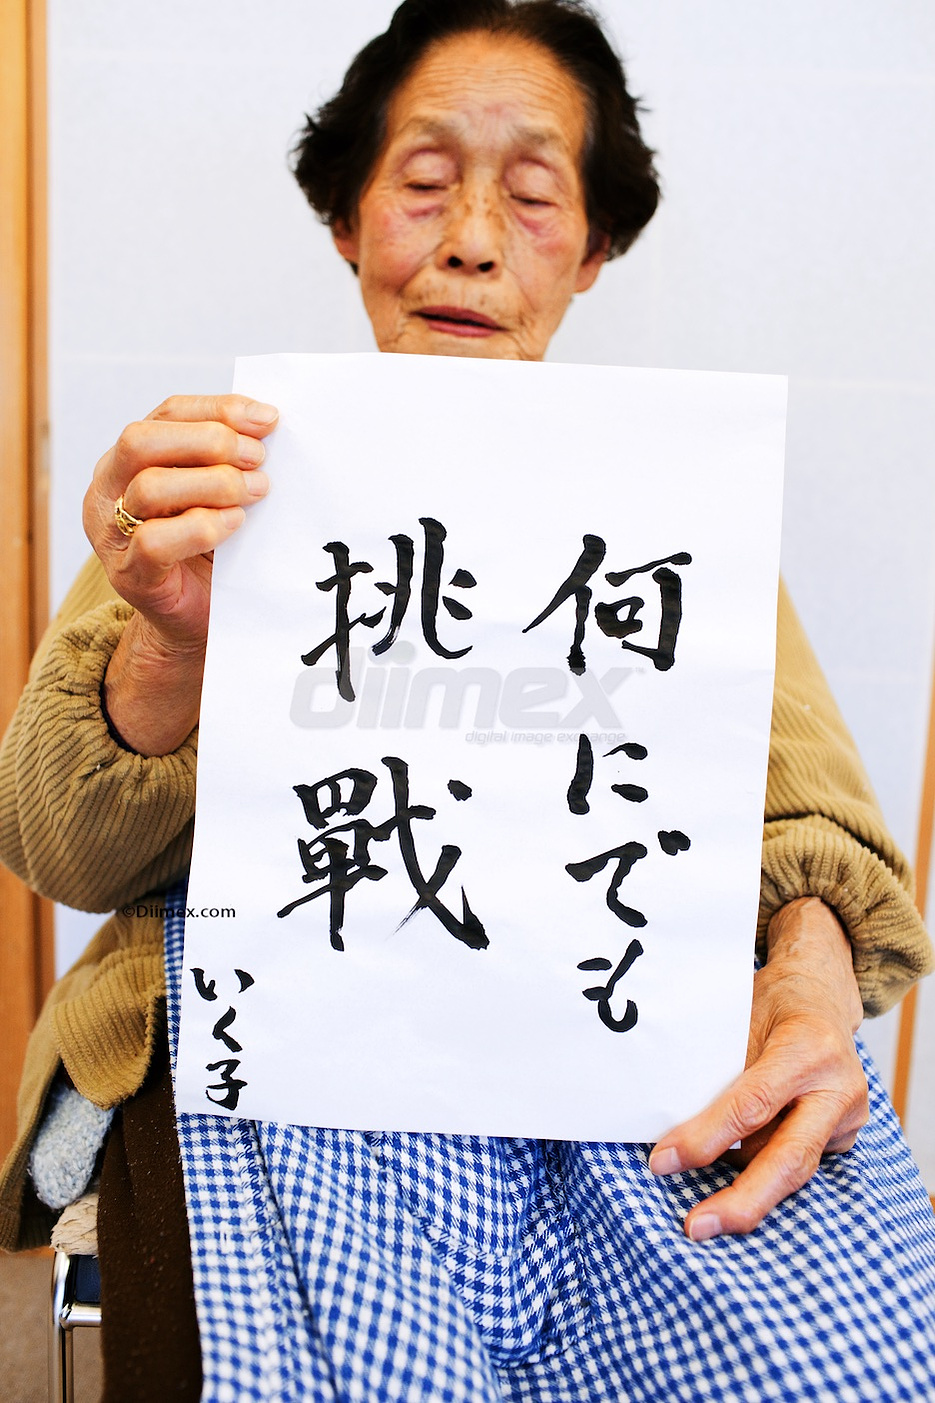 何にでも
挑戰
いく子
diimex
digital image exchange
©Diimex.com